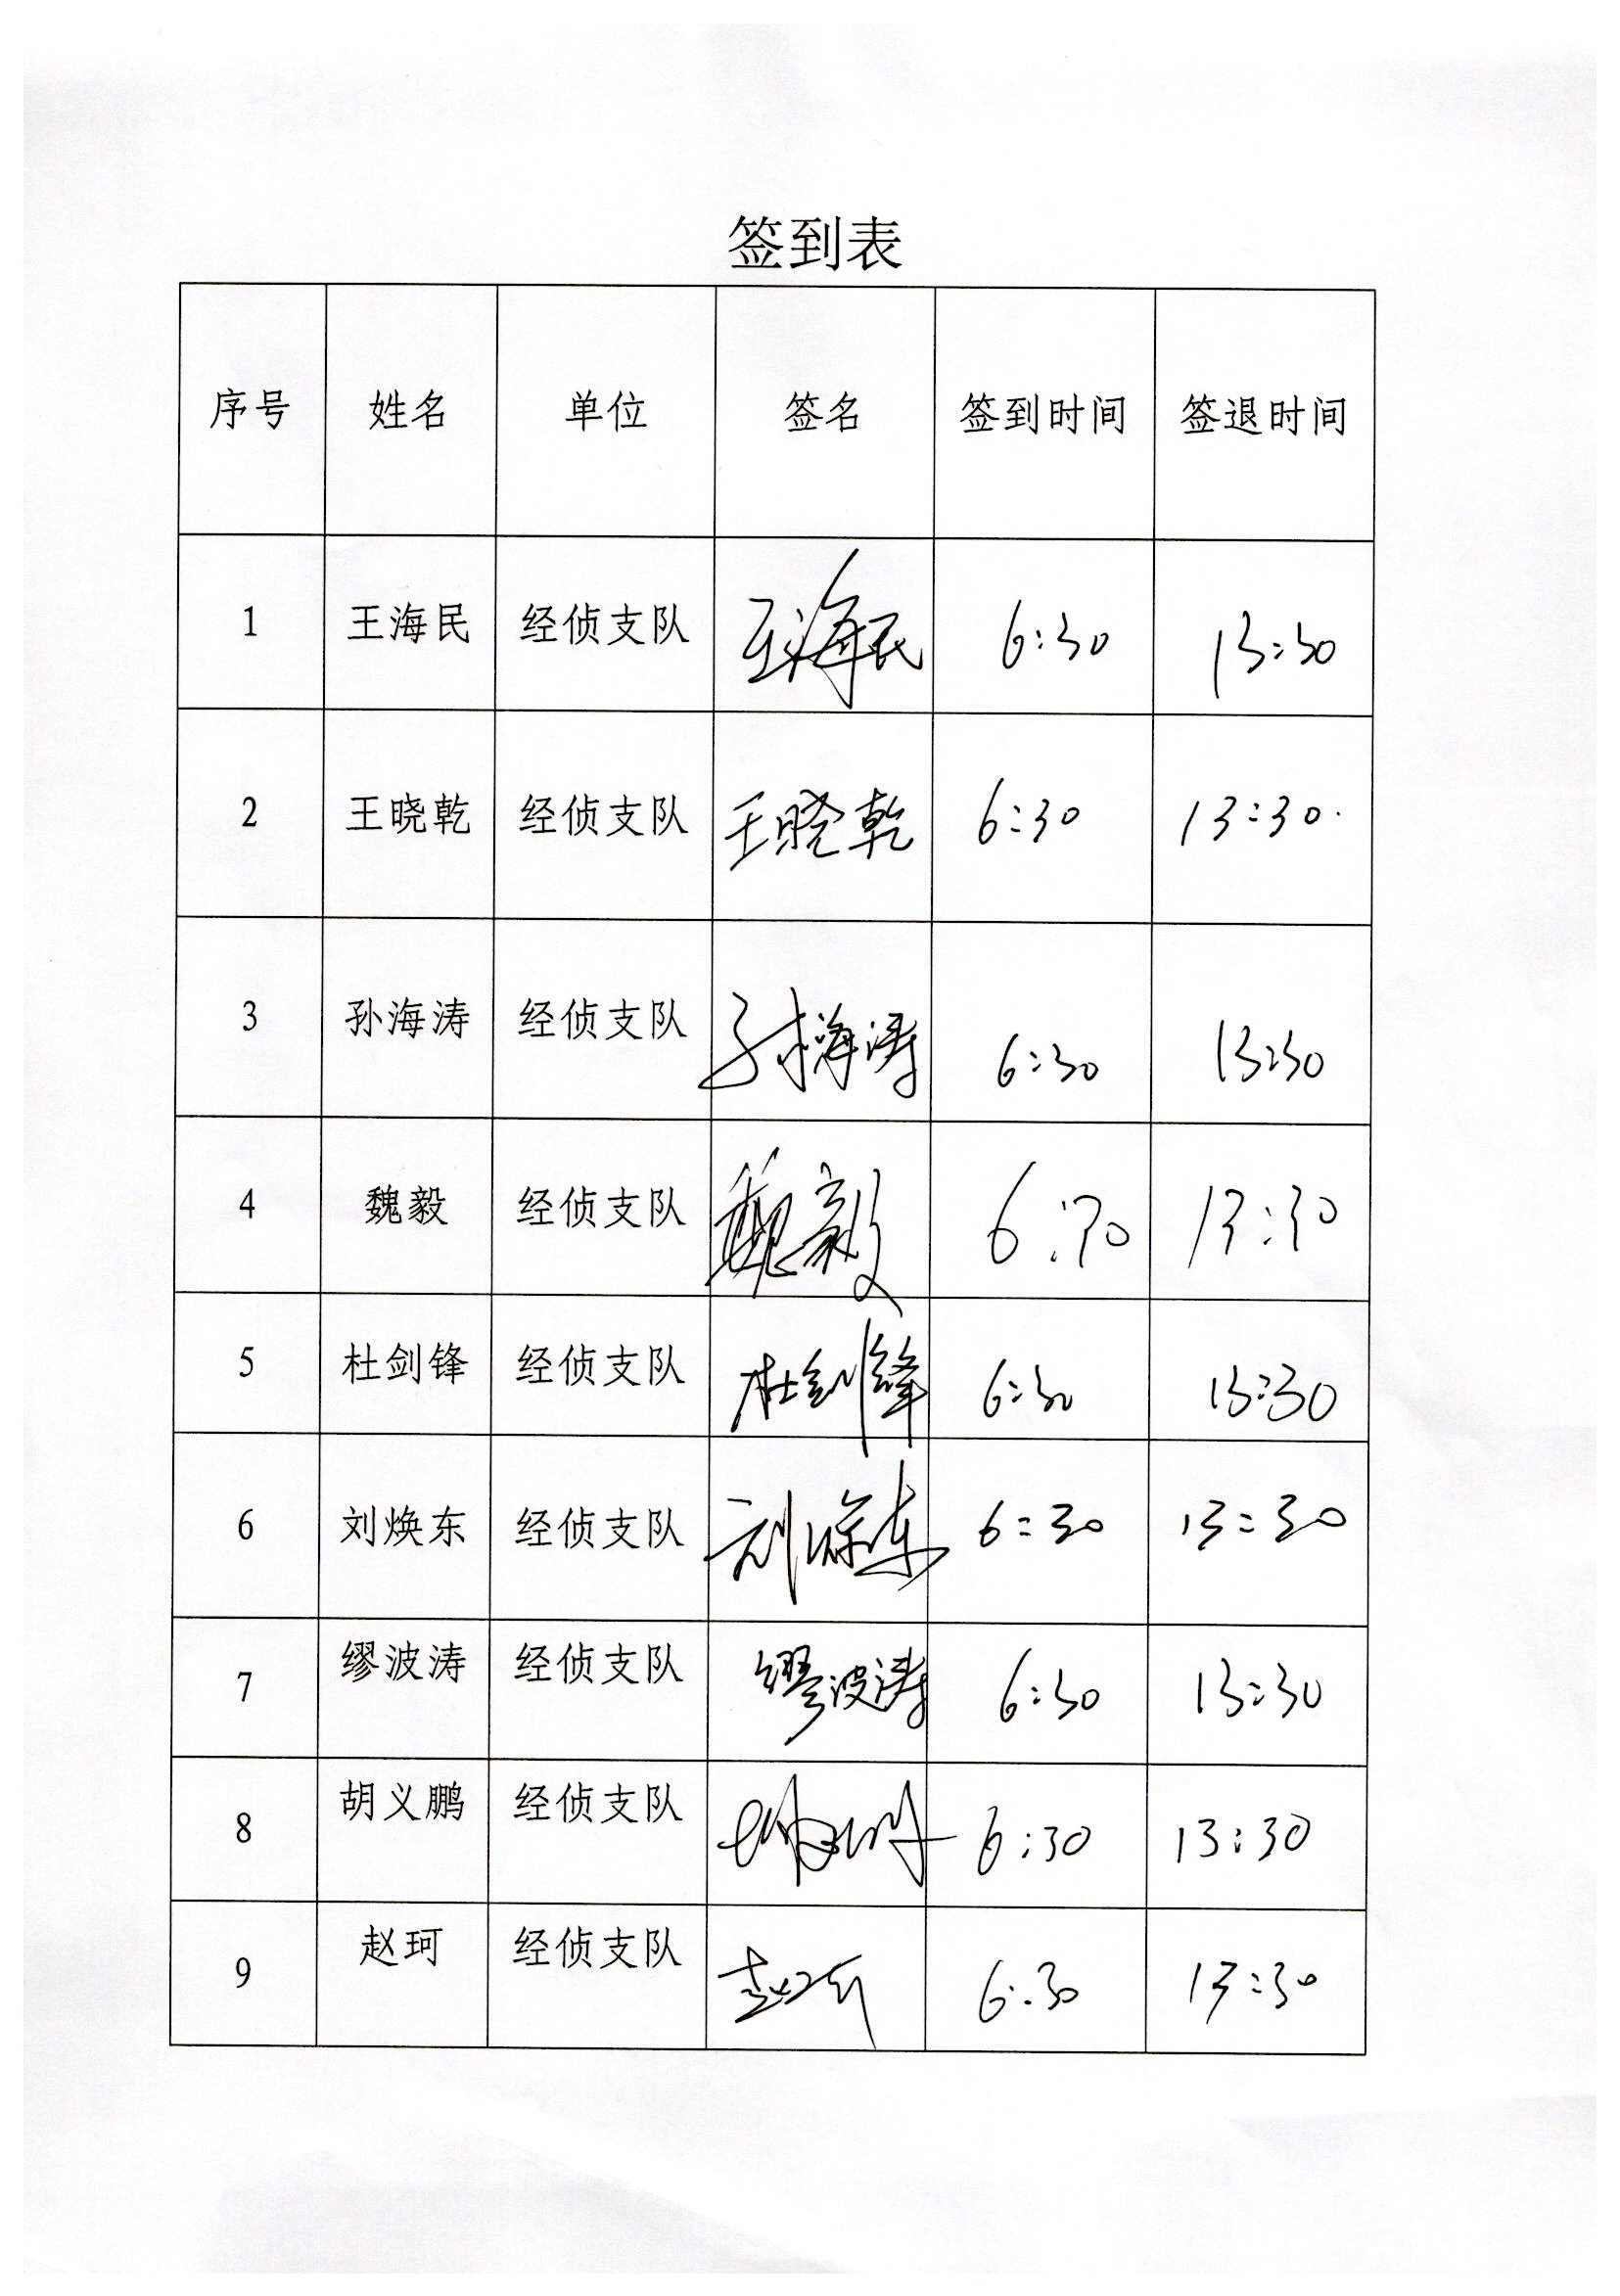 签到表
序号 姓名 单位 签名 签到时间 签退时间
1 王海民 经侦支队 王海民 6:30 13:30
2 王晓乾 经侦支队 王晓乾 6:30 13:30.
3 孙海涛 经侦支队 孙海涛 6:30 13:30
4 魏毅 经侦支队 魏毅 6:30 13:30
5 杜剑锋 经侦支队 杜剑锋 6:30 13:30
6 刘焕东 经侦支队 刘焕东 6:30 13:30
7 缪波涛 经侦支队 缪波涛 6:30 13:30
8 胡义鹏 经侦支队 6:30 13:30
9 赵珂 经侦支队 赵珂 6:30 13:30